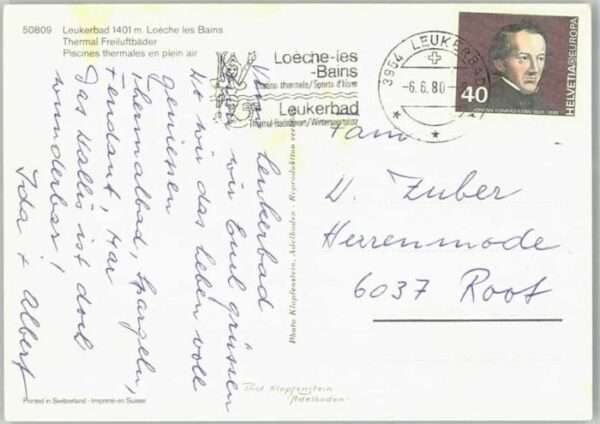 50809 Leukerbad 1401 m. Loèche les Bains
Thermal Freiluftbäder
Piscines thermales en plein air
Loèche-les
-Bains
Station thermale/Sports d'hiver
Leukerbad
Thermal-Badekurort/Wintersportplatz
3954 LEUKERBAD
-6.6.80
40
HELVETIA EUROPA
Leukerbad
wir Euch grüssen
wo wir das Leben voll
geniessen
Thermalbad, Spargeln,
Fendant, Har
Das Wallis ist doch
wunderbar!
Ida + Albert
Fam.
W. Zuber
Herrenmode
6037 Root
Photo Klopfenstein, Adelboden - Reproduktion
Klopfenstein
Adelboden
Printed in Switzerland - Imprimé en Suisse